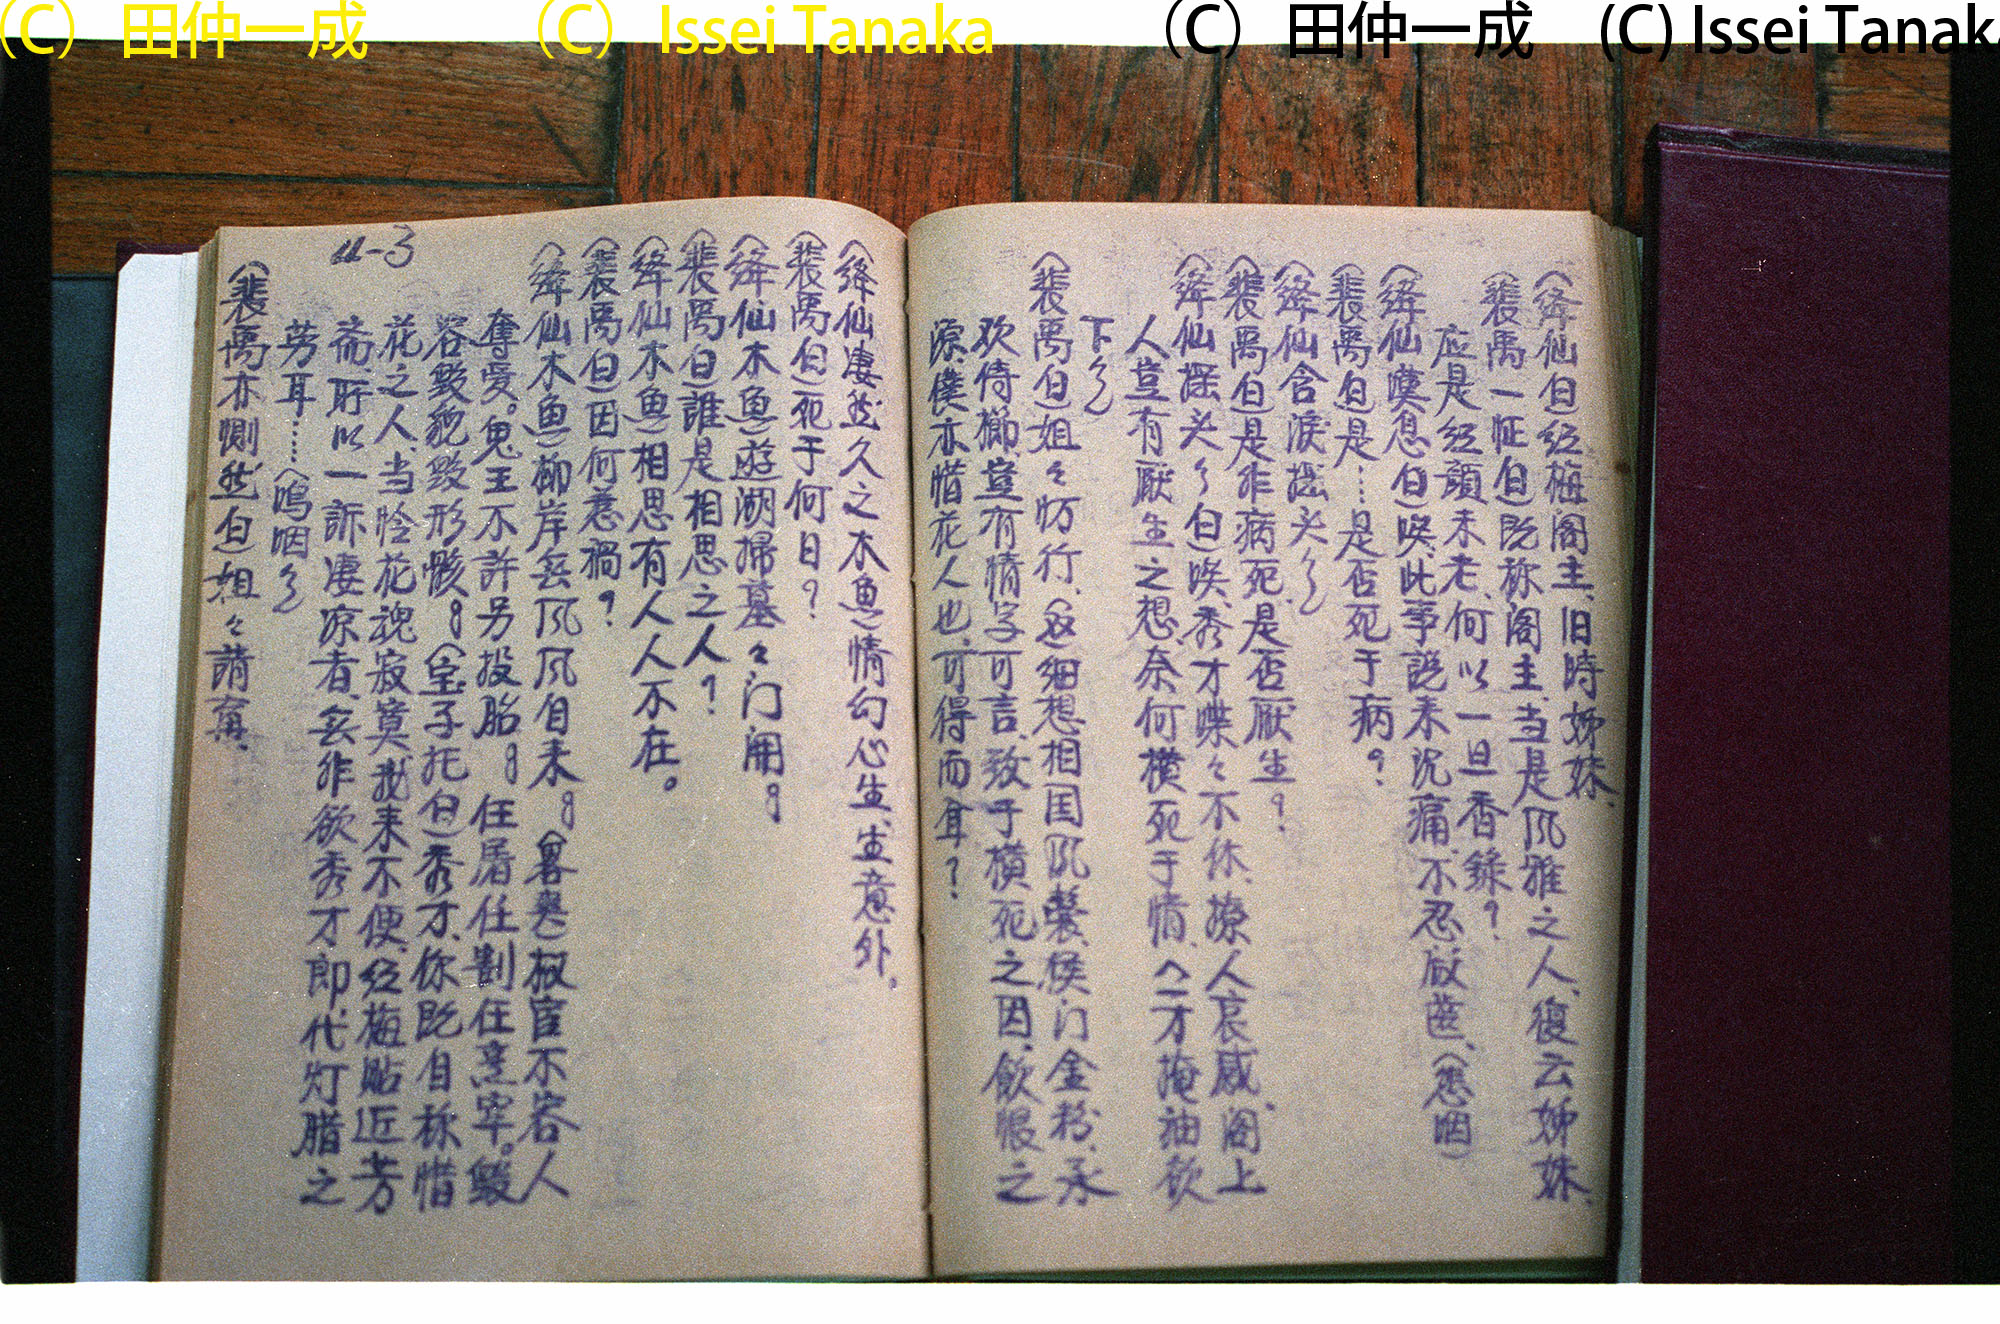 (C) 田仲一成 (C) Issei Tanaka (C) 田仲一成 (C) Issei Tanaka
(绛仙白)红梅阁主、旧時姊妹、
(裴禹一怔白)既称阁主、当是风雅之人、復云姊妹、
应是红顏未老、何以一旦香銷?
(绛仙嘆息白)唉、此事説来沉痛、不忍啟齿、(悲咽)
(裴禹白)是……是否死于病?
(绛仙含淚摇头介)
(裴禹白)是非病死、是否厭生?
(绛仙摇头介白)唉、秀才喋々不休、撩人哀感、阁上
人豈有厭生之想、奈何横死于情、(一才掩袖欲
下介)
(裴禹白)姐々妨行、(返)細想相国风襲、侯门金粉、承
欢侍櫛、豈有情字可言、致于横死之因、飲恨之
源、僕亦惜花人也、可得而耳?
(绛仙凄然久之木魚)情幻心生、生意外。
(裴禹白)死于何日?
(绛仙木魚)遊湖掃墓々门開。
(裴禹白)誰是相思之人?
(绛仙木魚)相思有人人不在。
(裴禹白)因何惹禍?
(绛仙木魚)柳岸無风风自来。(署煞)椒官不容人
奪愛。鬼王不許另投胎。任屠任劏任烹宰。毀
容毀貌毀形骸。(宝子托白)秀才、你既自称惜
花之人、当怜花魂寂寞、我来不便、红梅貼近芳
斋、所以一訴凄凉者、無非欲秀才郎、代灯腊之
芳耳……(鳴咽介)
11-3
(裴禹亦惻然白)姐々請再、